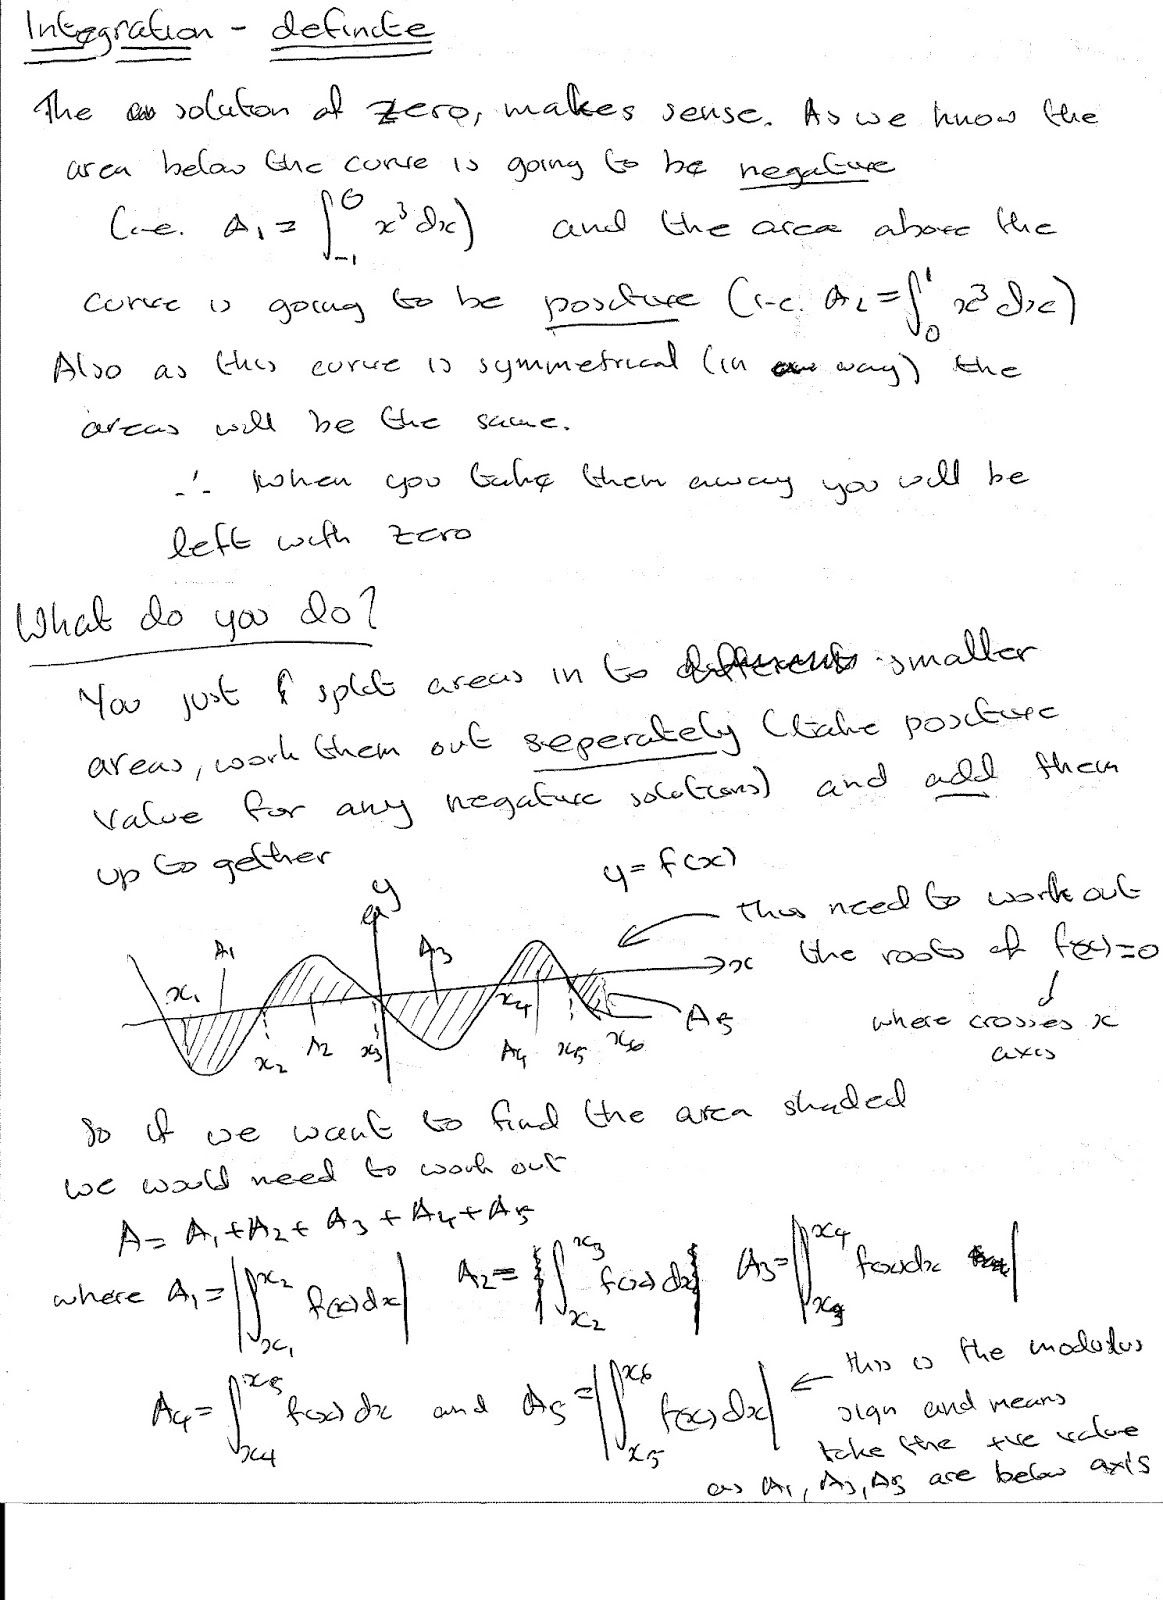 Integration - definite
The solution of zero, makes sense. As we know the
area below the curve is going to be negative
(i.e. A₁ = ∫₋₁⁰ x³ dx) and the area above the
curve is going to be positive (i.e. A₂ = ∫₀¹ x³ dx)
Also as this curve is symmetrical (in a way) the
areas will be the same.
∴ when you take them away you will be
left with zero
What do you do?
You just split areas in to smaller
areas, work them out seperately (take positive
value for any negative solutions) and add them
up to gether
y = f(x)
y
This need to work out
the roots of f(x)=0
where crosses x
axis
A₁ A₃ x
x₁ x₄ A₅
x₂ A₂ x₃ A₄ x₅ x₆
So if we want to find the area shaded
we would need to work out
A = A₁ + A₂ + A₃ + A₄ + A₅
where A₁ = |∫ₓ₁ˣ² f(x) dx| A₂ = ∫ₓ₂ˣ³ f(x) dx A₃ = |∫ₓ₃ˣ⁴ f(x) dx|
A₄ = ∫ₓ₄ˣ⁵ f(x) dx and A₅ = |∫ₓ₅ˣ⁶ f(x) dx|
this is the modulus
sign and means
take the +ve value
as A₁, A₃, A₅ are below axis